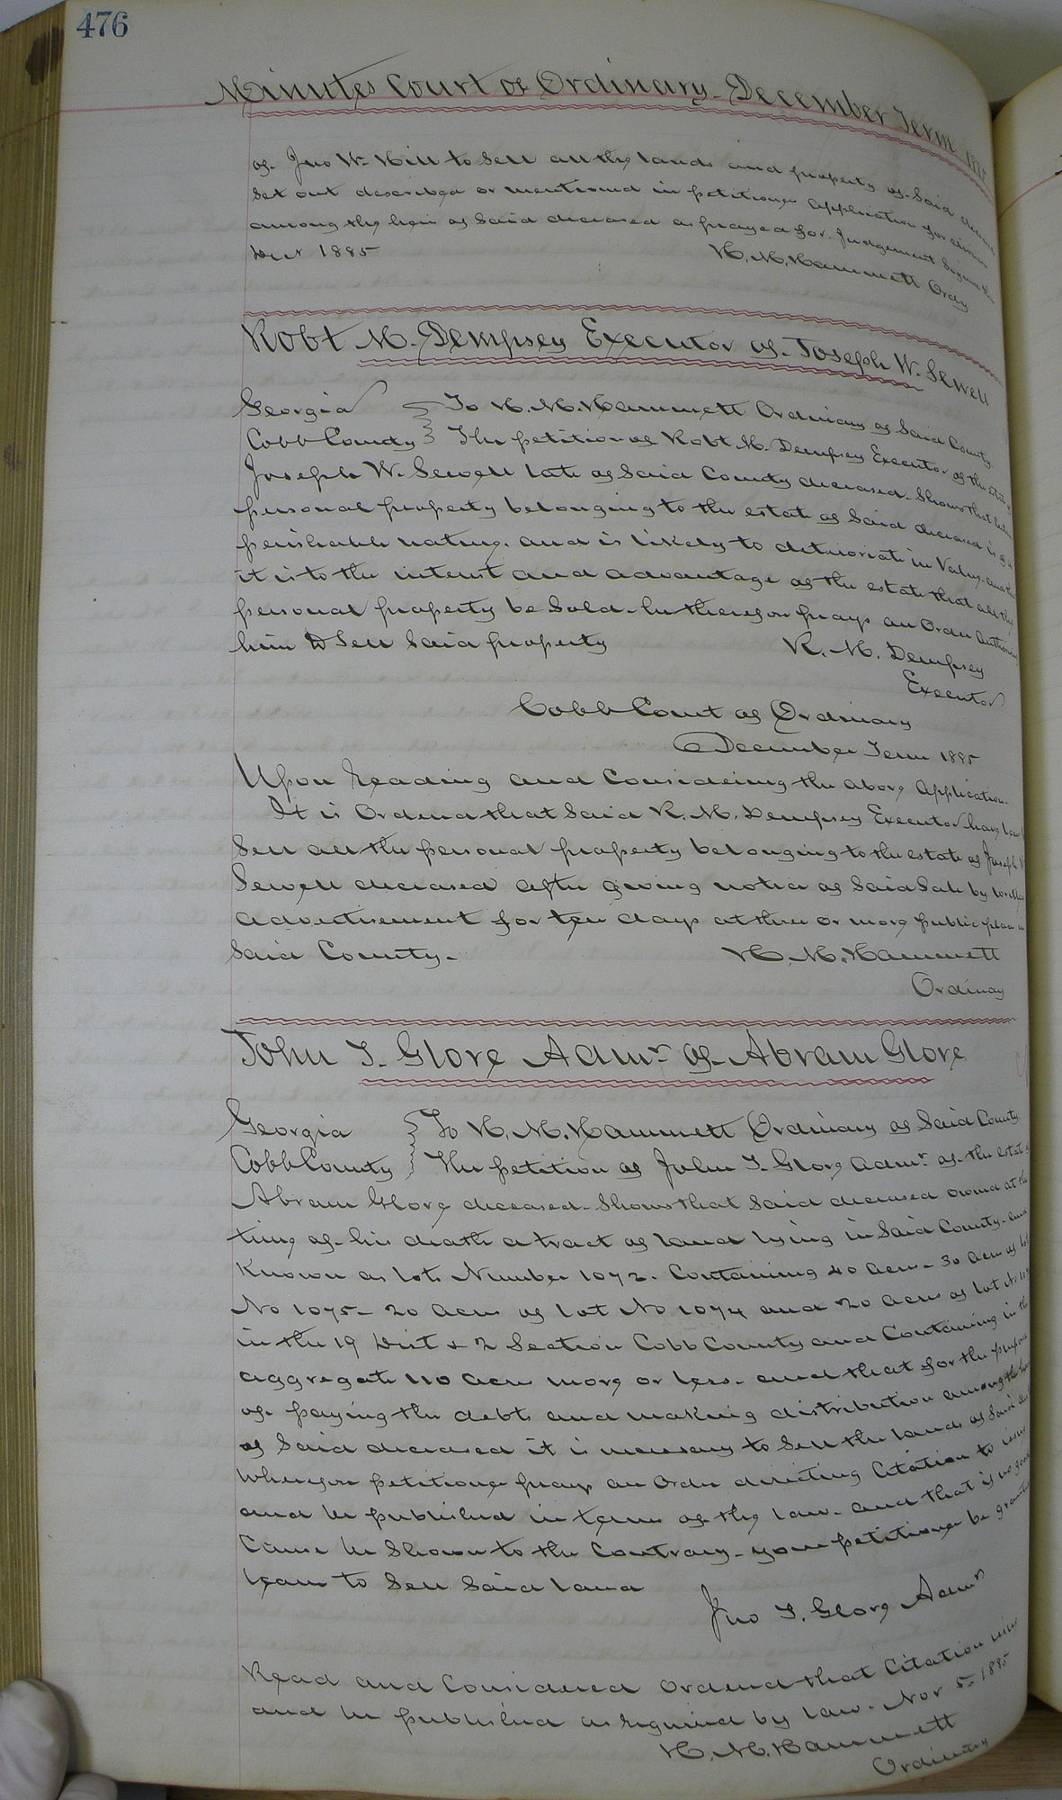 476
Minutes Court of Ordinary December Term
of Jno W. Hill to Sell all the lands and property of Said
Set out described or mentioned in petitioners application for
among the heirs of Said deceased as prayed for. Judgement Signed this
Decr 1885 H. M. Hammett Ordy
Robt M. Dempsey Executor of Joseph W. Sewell
Georgia } To H. M. Hammett Ordinary of Said County
Cobb County } The petition of Robt M. Dempsey Executor of the
Joseph W. Sewell late of Said County deceased. Shows that
personal property belonging to the estate of Said deceased is of
perishable nature. and is likely to deteriorate in Value. and
it is to the interest and advantage of the estate that all the
personal property be Sold. he therefore prays an Order
him to Sell Said property R. M. Dempsey
Executor
Cobb Court of Ordinary
December Term 1885
Upon Reading and Considering the above application.
It is Ordered that Said R. M. Dempsey Executor have
Sell all the personal property belonging to the estate of Joseph W
Sewell deceased after giving notice of Said Sale by
advertisement for ten days at three or more public places in
Said County. H. M. Hammett
Ordinay
John T. Glore Admr of Abram Glore
Georgia } To H. M. Hammett Ordinary of Said County
Cobb County } The petition of John T. Glore admr of the estate
Abram Glore deceased. Shows that Said deceased owned at the
time of his death a tract of land lying in Said County. and
Known as lots Number 1072. Containing 40 acres - 30 acres of lot
No 1075 - 20 acres of lot No 1074 and 20 acres of lot No
in the 19 Dist & 2 Section Cobb County and Containing in the
aggregate 110 acres more or less. and that for the purpose
of paying the debts and making distribution among the
of Said deceased it is necessary to Sell the lands of Said
Wherefore petitioner prays an Order directing Citation to issue
and be published in terms of the law. and that if no good
Cause be Shown to the Contrary. your petitioner be granted
leave to Sell Said land
Jno T. Glore Admr
Read and Considered Ordered that Citation issue
and be published as required by law. Nov 5 1885
H. M. Hammett
Ordinary